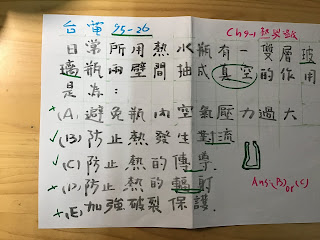 台電 95-26
Ch9-1 熱與
日常所用熱水瓶有一雙層玻
璃瓶兩壁間抽成真空的作用
是為:
×(A) 避免瓶內空氣壓力過大
✓(B) 防止熱發生對流
✓(C) 防止熱的傳導.
×(D) 防止熱的輻射
×(E) 加強破裂保護.
Ans:(B)or(C)